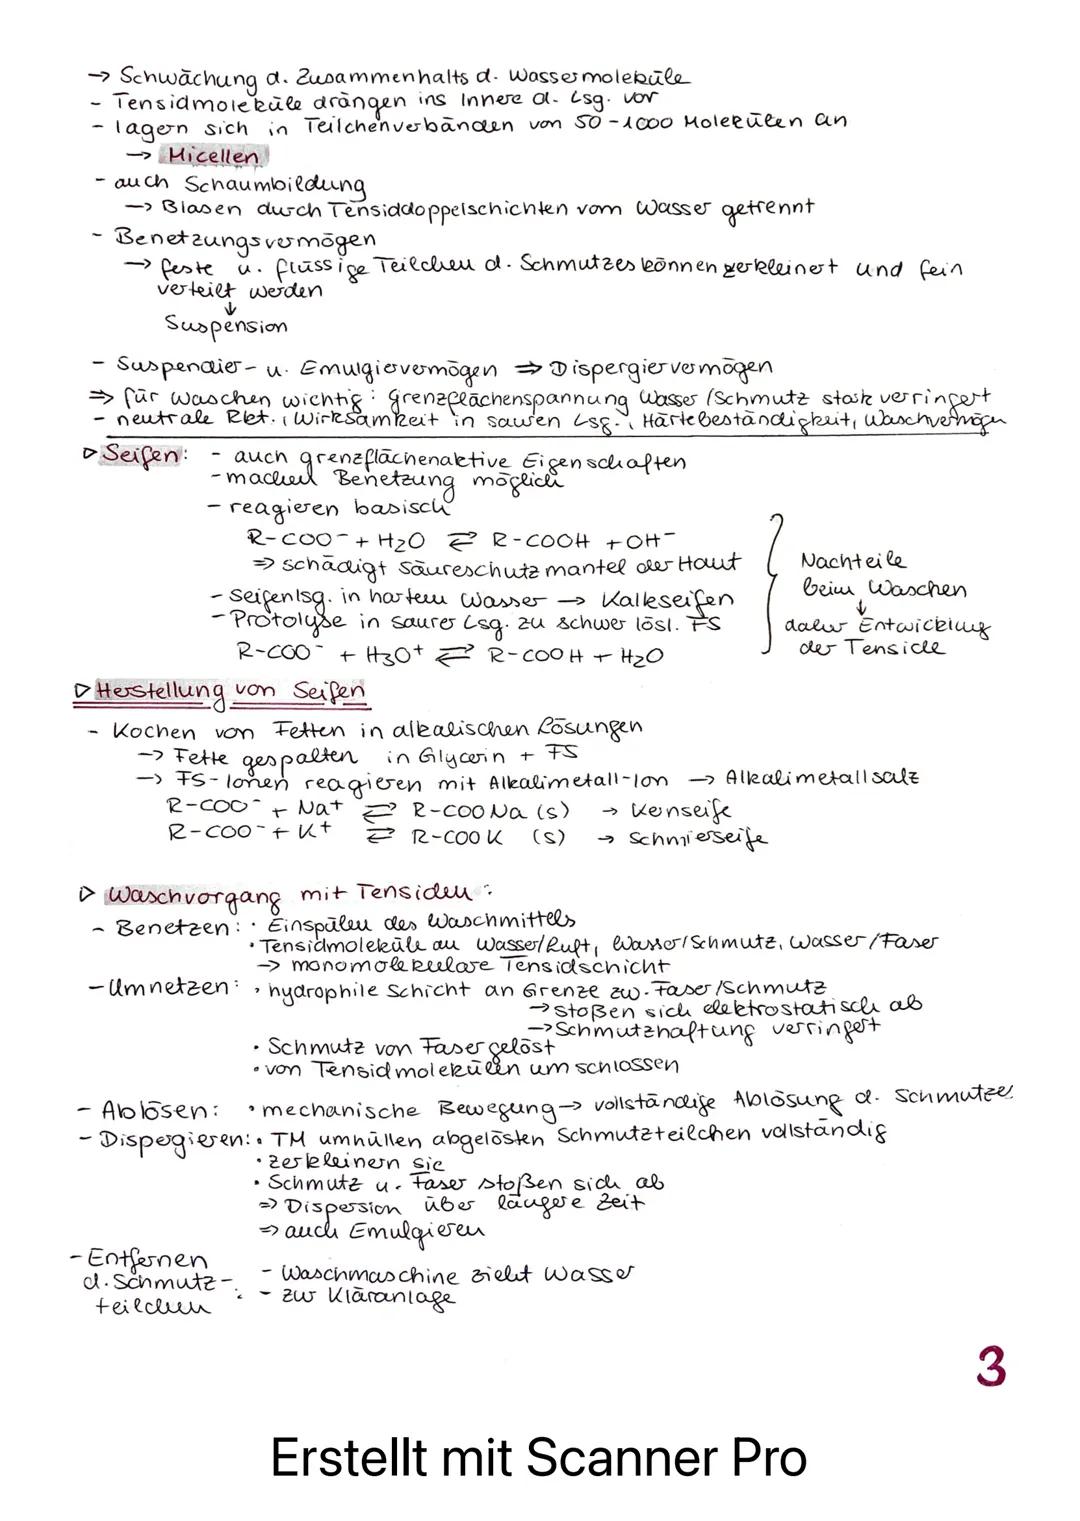 → Schwächung d. Zusammenhalts d. Wassermoleküle
- Tensidmoleküle drängen ins Innere d. Lsg. vor
- lagern sich in Teilchenverbänden von 50-1000 Molekülen an
→ Micellen
- auch Schaumbildung
→ Blasen durch Tensiddoppelschichten vom Wasser getrennt
- Benetzungsvermögen
→ feste u. flüssige Teilchen d. Schmutzes können zerkleinert und fein
verteilt werden
↓
Suspension
- Suspendier- u. Emulgiervermögen ⇒ Dispergiervermögen
⇒ für waschen wichtig: Grenzflächenspannung Wasser/Schmutz stark verringert
- neutrale Rkt., Wirksamkeit in sauren Lsg., Härtebeständigkeit, Waschvermögen
▷ Seifen: - auch grenzflächenaktive Eigenschaften
- machen Benetzung möglich
- reagieren basisch
R-COO⁻ + H₂O ⇌ R-COOH + OH⁻
⇒ schädigt Säureschutzmantel der Haut
- Seifenlsg. in hartem Wasser → Kalkseifen
- Protolyse in saurer Lsg. zu schwer lösl. FS
R-COO⁻ + H₃O⁺ ⇌ R-COOH + H₂O
Nachteile
beim Waschen
↓
daher Entwicklung
der Tenside
▷ Herstellung von Seifen
- Kochen von Fetten in alkalischen Lösungen
→ Fette gespalten in Glycerin + FS
→ FS-Ionen reagieren mit Alkalimetall-Ion → Alkalimetallsalz
R-COO⁻ + Na⁺ ⇌ R-COONa (s) → Kernseife
R-COO⁻ + K⁺ ⇌ R-COOK (s) → Schmierseife
▷ Waschvorgang mit Tensiden:
- Benetzen: · Einspülen des Waschmittels
· Tensidmoleküle an Wasser/Luft, Wasser/Schmutz, Wasser/Faser
→ monomolekulare Tensidschicht
- Umnetzen: · hydrophile Schicht an Grenze zw. Faser/Schmutz
→ stoßen sich elektrostatisch ab
→ Schmutzhaftung verringert
· Schmutz von Faser gelöst
· von Tensidmolekülen umschlossen
- Ablösen: · mechanische Bewegung → vollständige Ablösung d. Schmutzes
- Dispergieren: · TM umhüllen abgelösten Schmutzteilchen vollständig
· zerkleinern sie
· Schmutz u. Faser stoßen sich ab
⇒ Dispersion über längere Zeit
⇒ auch Emulgieren
- Entfernen
d. Schmutz-
teilchen:
- Waschmaschine zieht Wasser
- zur Kläranlage
3
Erstellt mit Scanner Pro